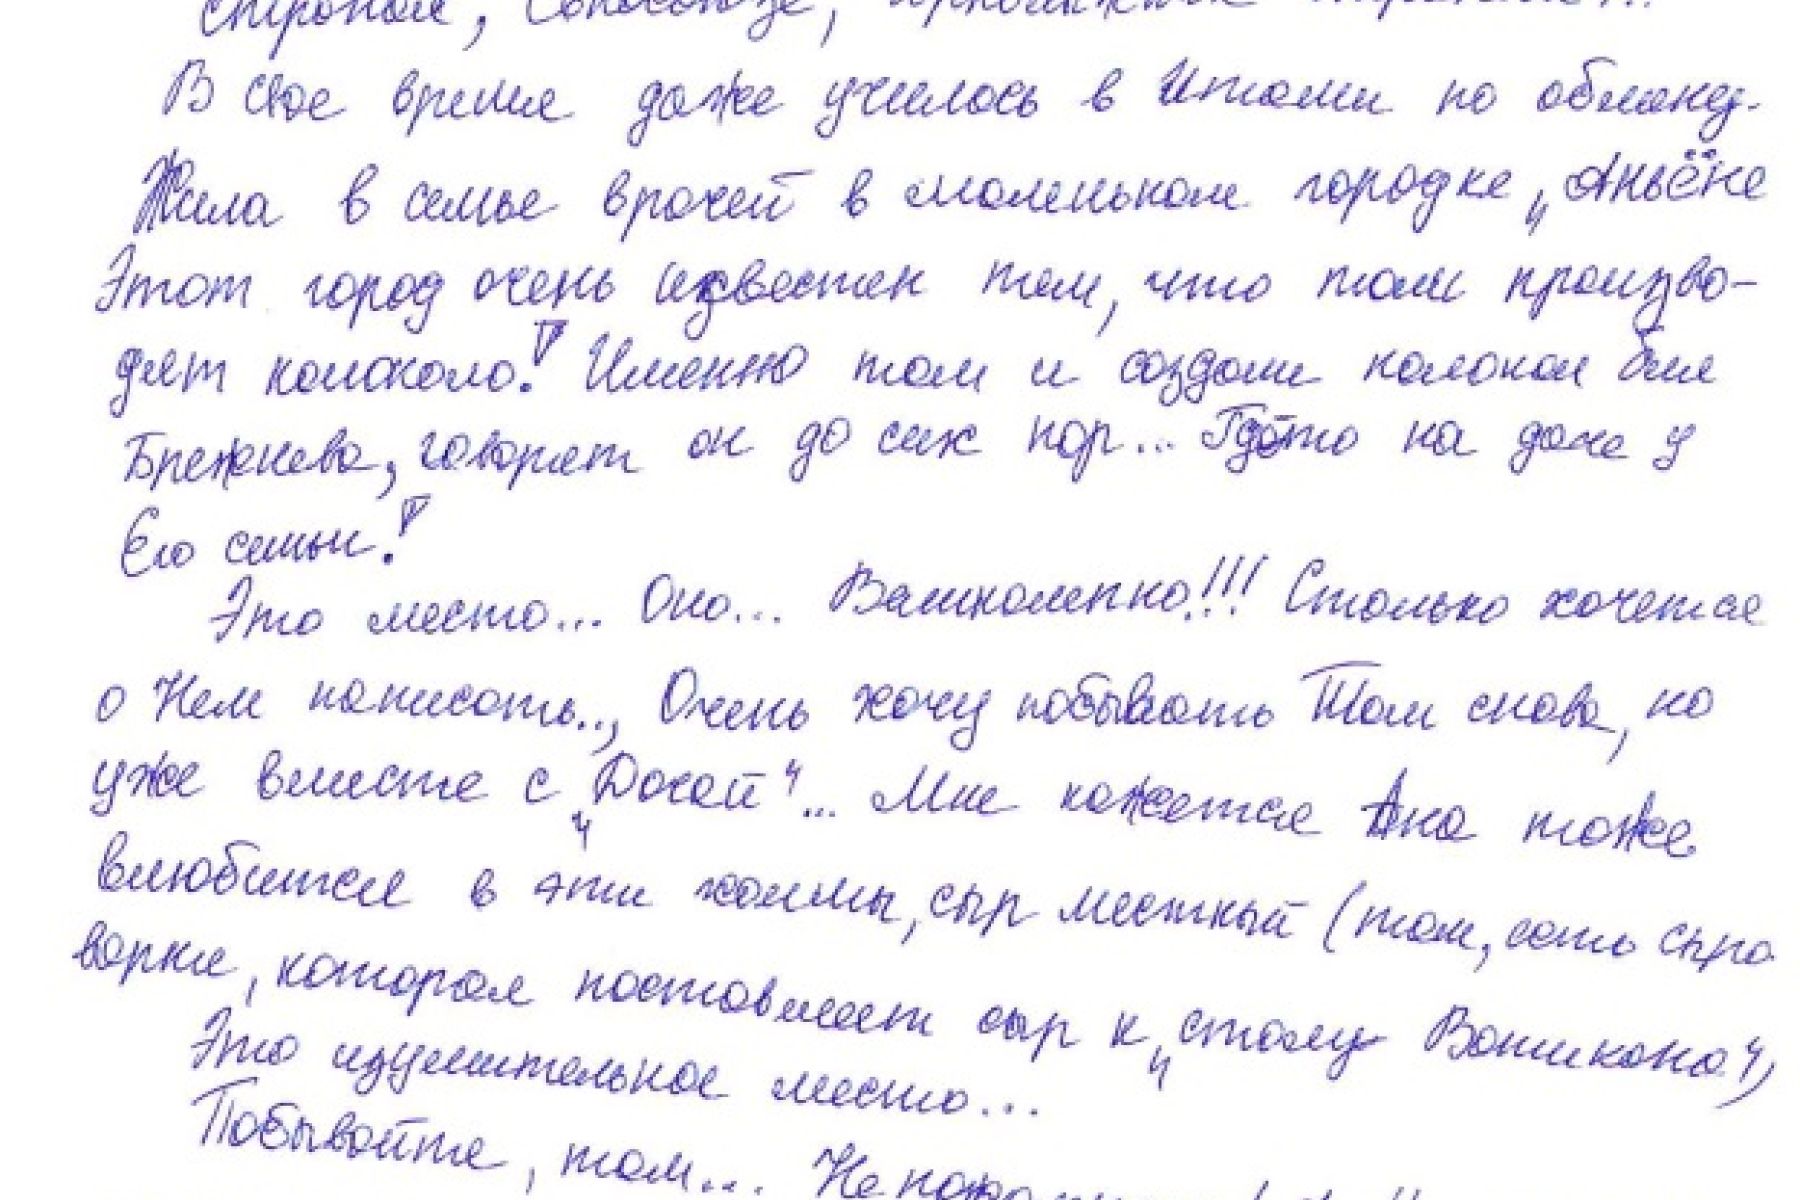 В свое время даже училась в Италии по обмену.
Жила в семье врачей в маленьком городке „Аньёне
Этот город очень известен тем, что там произво-
дят колокола! Именно там и создали колокол для
Брежнева, говорят он до сих пор... Где-то на даче у
Его семьи!
Это место... Оно... Великолепно!!! Столько хочется
о Нем написать.., Очень хочу побывать Там снова, но
уже вместе с „Дочей"... Мне кажется Она тоже
влюбится в эти холмы, сыр местный (там, есть сыро
варня, которая поставляет сыр к „столу Ватикана")
Это изумительное место...
Побывайте, там...